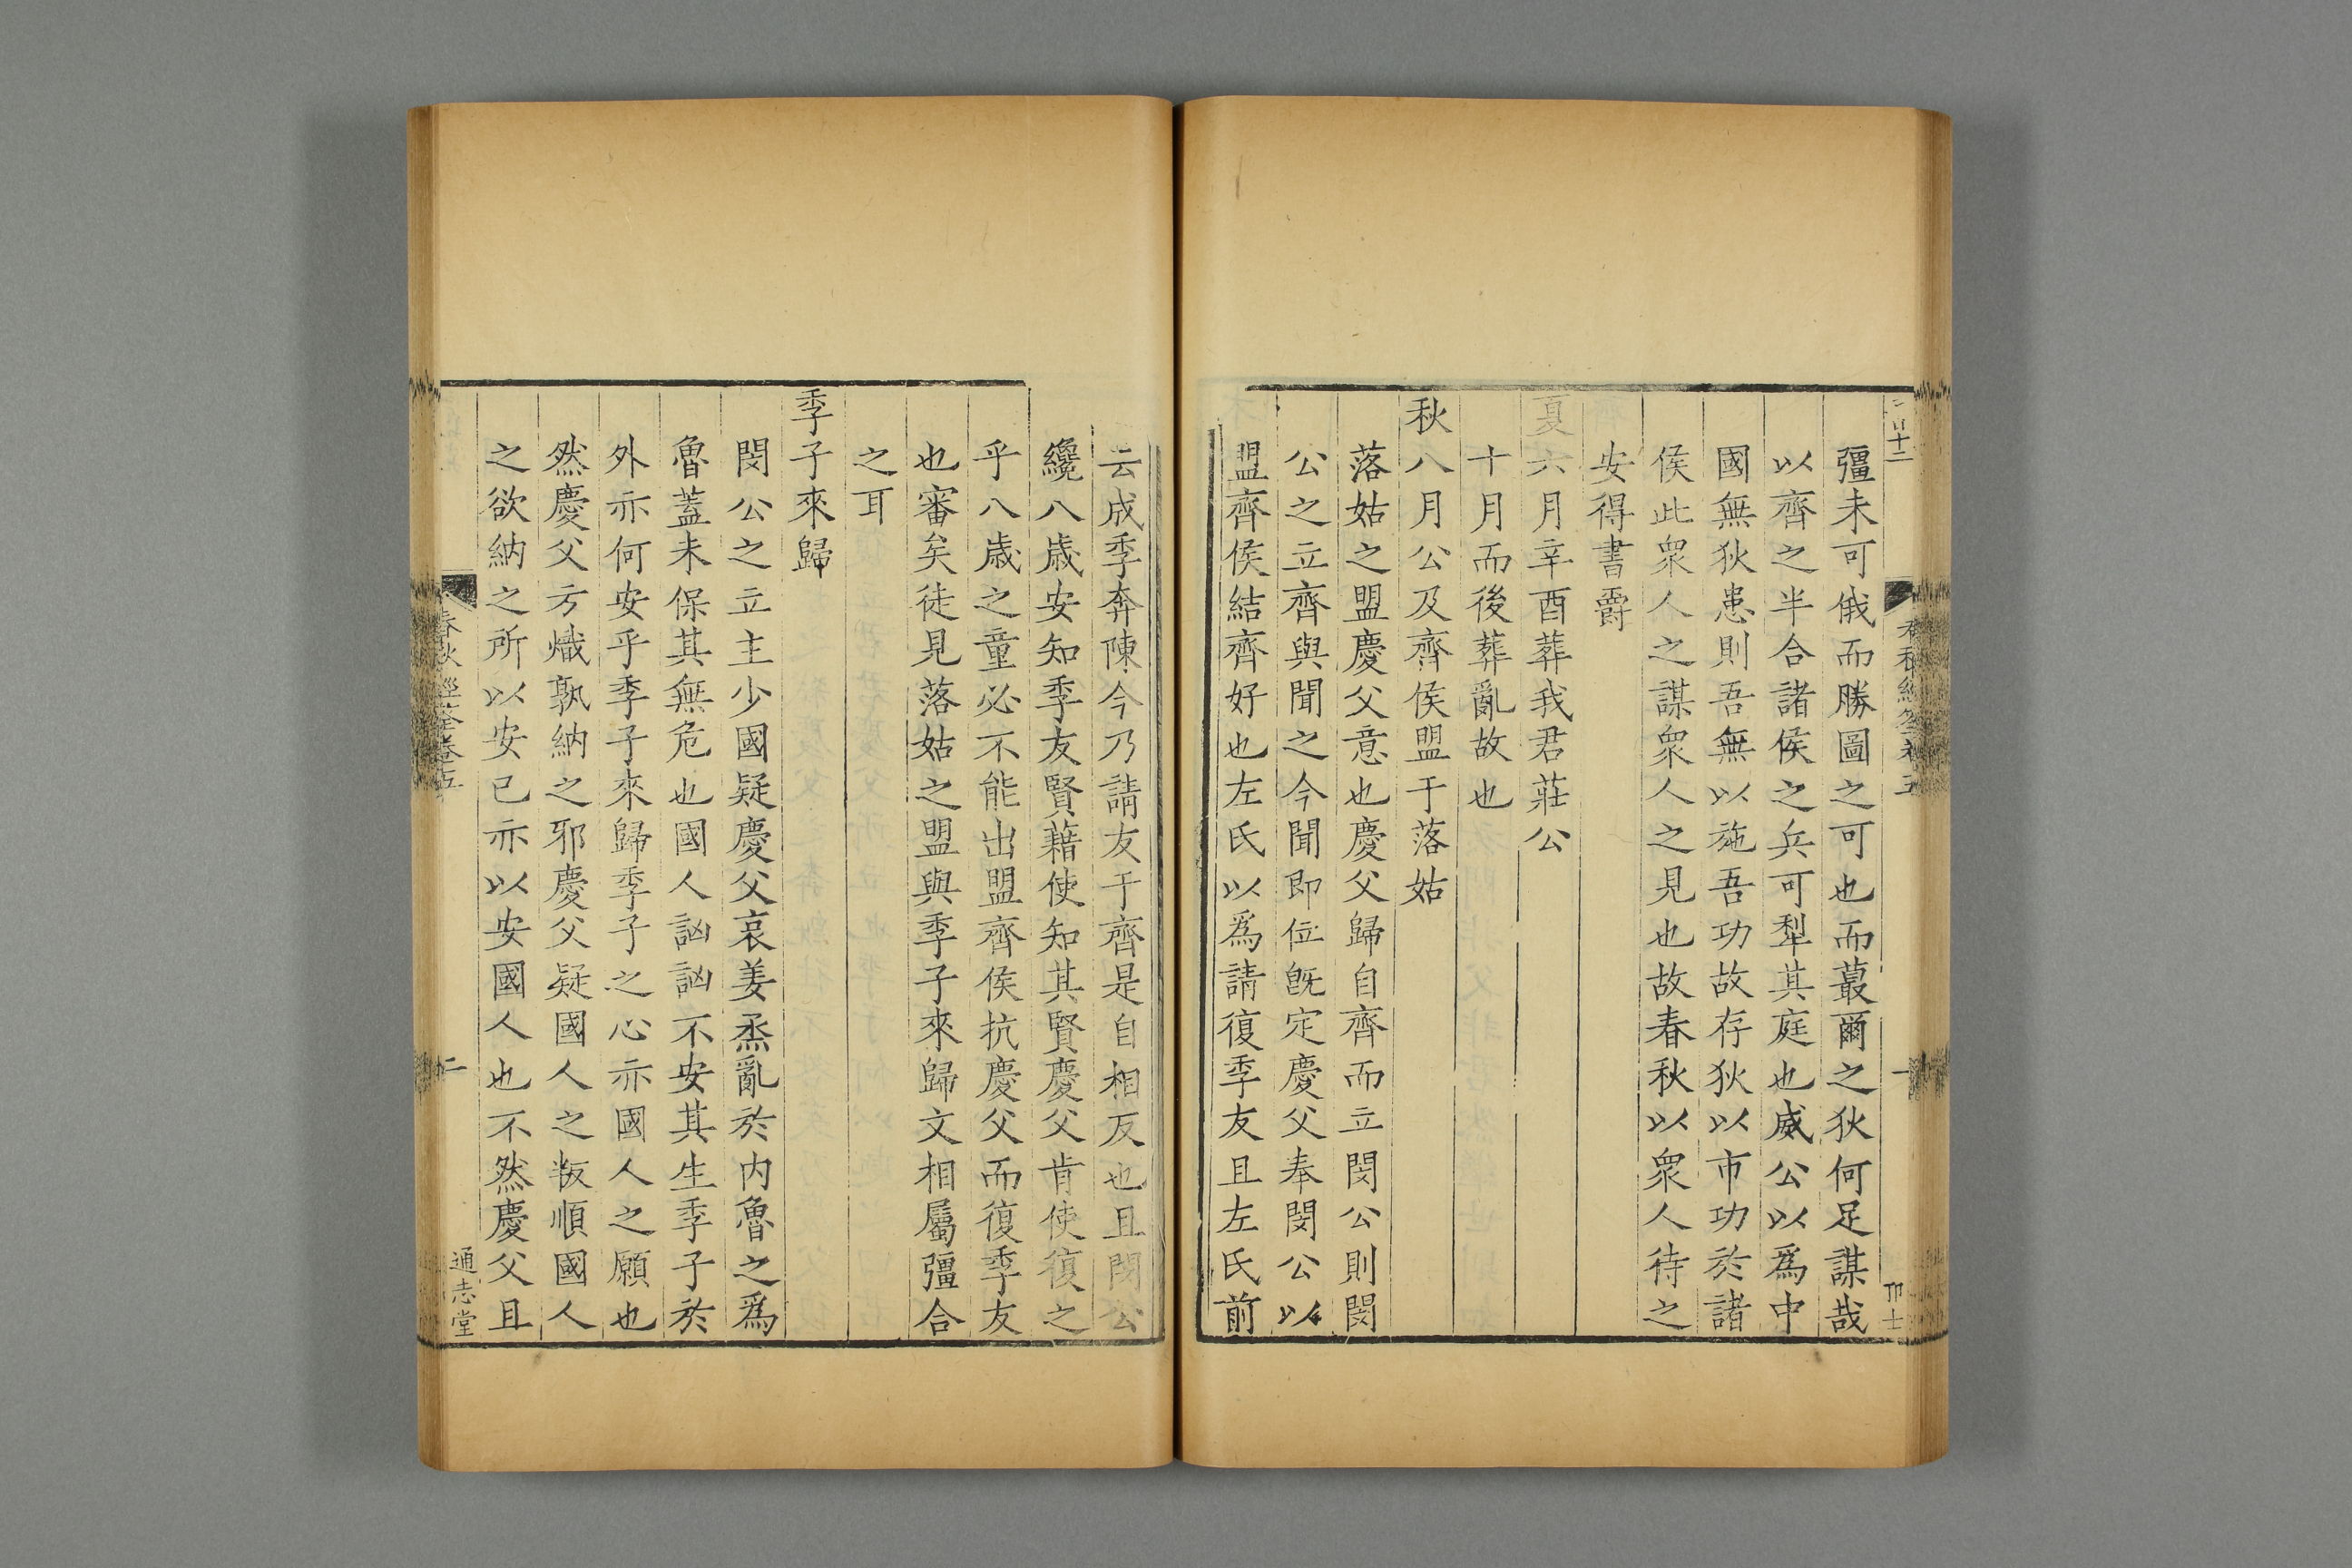 彊未可俄而勝圖之可也而蕞爾之狄何足謀哉
以齊之半合諸侯之兵可犁其庭也威公以爲中
國無狄患則吾無以施吾功故存狄以市功於諸
侯此衆人之謀衆人之見也故春秋以衆人待之
安得書爵
夏六月辛酉葬我君莊公
十月而後葬亂故也
秋八月公及齊侯盟于落姑
落姑之盟慶父意也慶父歸自齊而立閔公則閔
公之立齊與聞之今聞即位旣定慶父奉閔公以
盟齊侯結齊好也左氏以爲請復季友且左氏前
云成季奔陳今乃請友于齊是自相反也且閔公
纔八歳安知季友賢藉使知其賢慶父肯使復之
乎八歳之童必不能出盟齊侯抗慶父而復季友
也審矣徒見落姑之盟與季子來歸文相屬彊合
之耳
季子來歸
閔公之立主少國疑慶父哀姜烝亂於内魯之爲
魯蓋未保其無危也國人訩訩不安其生季子於
外亦何安乎季子來歸季子之心亦國人之願也
然慶父方熾孰納之邪慶父疑國人之叛順國人
之欲納之所以安已亦以安國人也不然慶父且
春秋經筌卷五
二
通志堂